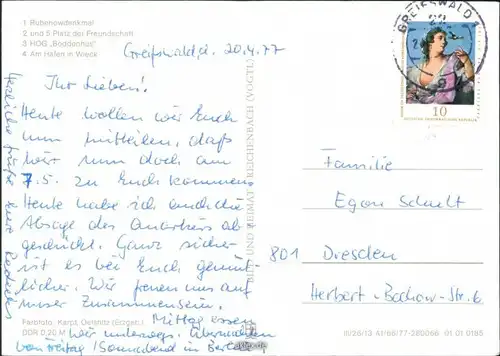 1 Rubenowdenkmal
2 und 5 Platz der Freundschaft
3 HOG „Boddenhus"
4 Am Hafen in Wieck
Greifswald, d. 20.4.77
Ihr Lieben!
Heute wollen wir Euch
nun mitteilen, daß
wir nun doch am
7.5. zu Euch kommen.
Heute habe ich auch die
Absage des Quartiers ab
geschickt. Ganz sicher
ist es bei Euch gemüt
licher. Wir freuen uns auf
unser Zusammensein.
Mittag essen
wir unterwegs. Übernachten
von Freitag/Sonnabend in
Herzliche Grüße Eure
BILD UND HEIMAT REICHENBACH (VOGTL)
Farbfoto: Karpf, Oelsnitz (Erzgeb.)
DDR 0,20 M
GREIFSWALD
22
10
DEUTSCHE DEMOKRATISCHE REPUBLIK
Familie
Egon Schelt
801 Dresden
Herbert-Bochow-Str. 6
III/26/13 A1/66/77-280066 01 01 0185